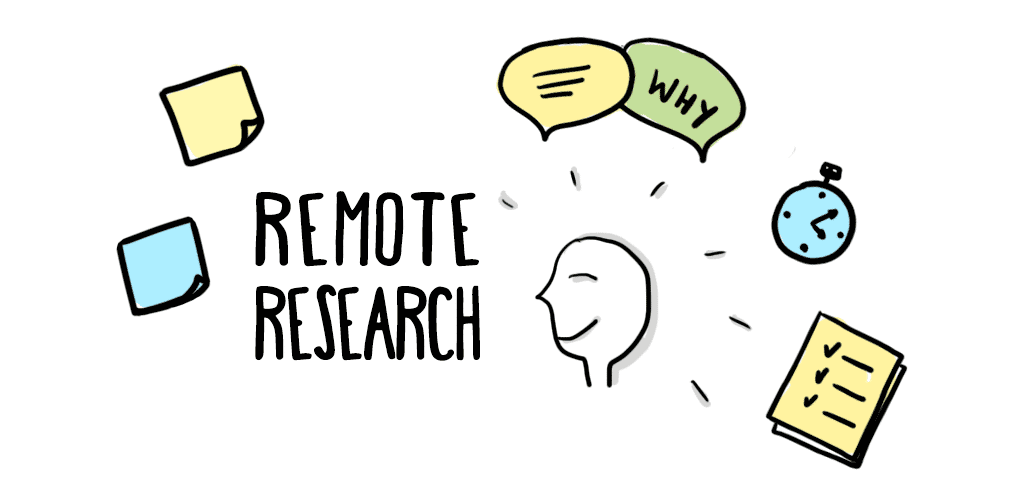 WHY
REMOTE
RESEARCH